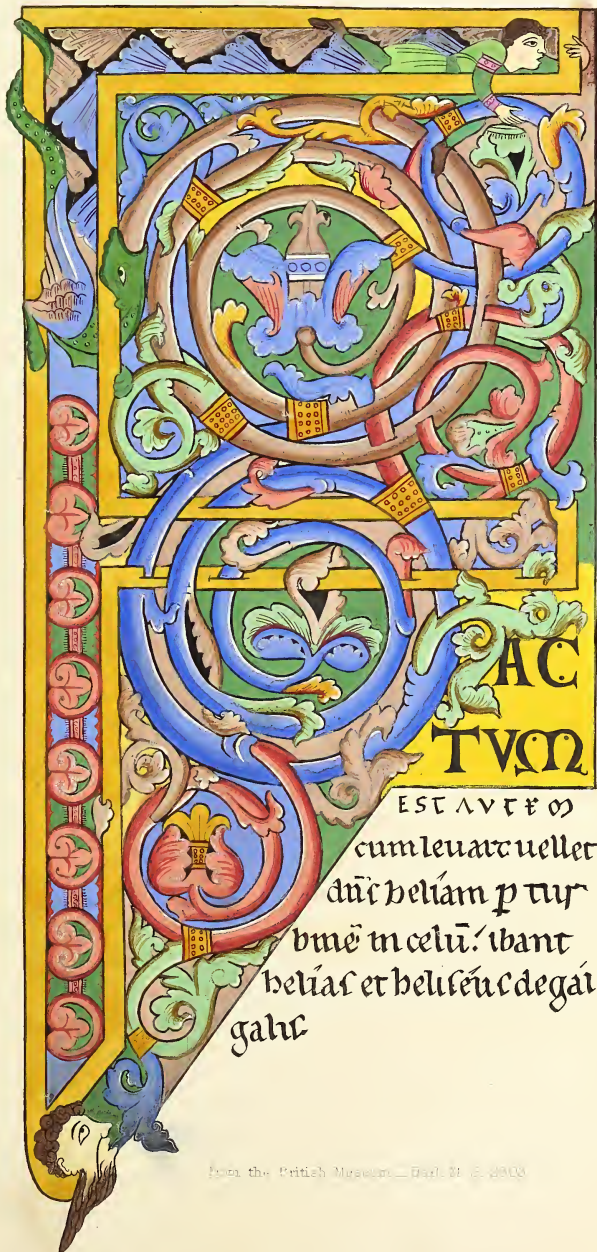 FAC
TVM
EST AVTEM
cum leuare uellet
dn̄s heliam ꝑ tur
binē in celū: ibant
helias et heliseus de gal
galis
from the British Museum